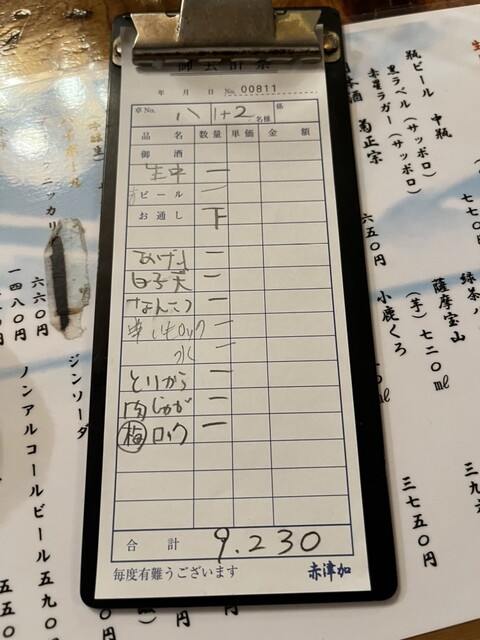 御会計票
年 月 日 No. 00811
卓No. 八 1+2 名様 係
品名 数量 単価 金額
御酒
生中 一
ビール 一
お通し 下
あげ 一
白子天 一
なんこつ 一
ロック 一
水 一
とりから 一
肉じゃが 一
梅ロック 一
合計 9.230
毎度有難うございます 赤津加
瓶ビール 中瓶
黒ラベル(サッポロ)
赤星ラガー(サッポロ)
菊正宗
六五〇円
小鹿くろ
緑茶ハ
薩摩宝山
(芋)七二〇㎖
三七五〇円
ニッカ
六六〇円
一四八〇円
ジンソーダ
ノンアルコールビール 五九〇